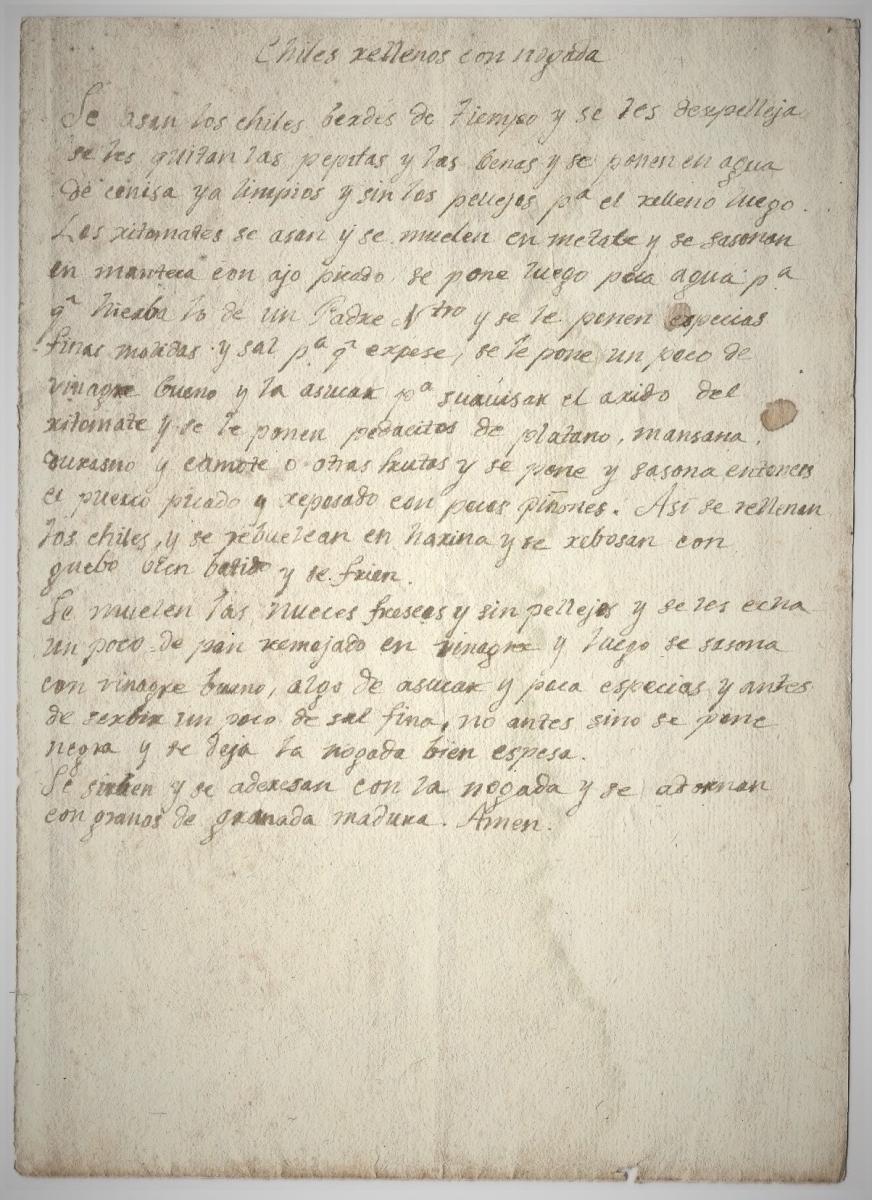 Chiles rellenos con nogada
Se asan los chiles berdes de tiempo y se les despelleja
se les quitan las pepitas y las benas y se ponen en agua
de cenisa ya limpios y sin los pellejos pª el relleno luego.
Los xitomates se asan y se muelen en metate y se sasonan
en manteca con ajo picado se pone luego poca agua pª
qª hierba lo de un Padre Ntro y se le ponen especias
finas molidas y sal pª qª expese, se le pone un poco de
vinagre bueno y la asucar pª suauisar el axido del
xitomate y se le ponen pedacitos de platano, mansana,
durasno y camote o otras frutas y se pone y sasona entonces
el puerco picado y reposado con pocos piñones. Asi se rellenan
los chiles, y se rebuelcan en harina y se rebosan con
guebo bien batido y se frien.
Se muelen las nueces frescas y sin pellejos y se les echa
un poco de pan remojado en vinagre y luego se sasona
con vinagre bueno, algo de asucar y poca especias y antes
de serbir un poco de sal fina, no antes sino se pone
negra y se deja la nogada bien espesa.
Se sirben y se aderesan con la nogada y se adornan
con granos de granada madura. Amen.